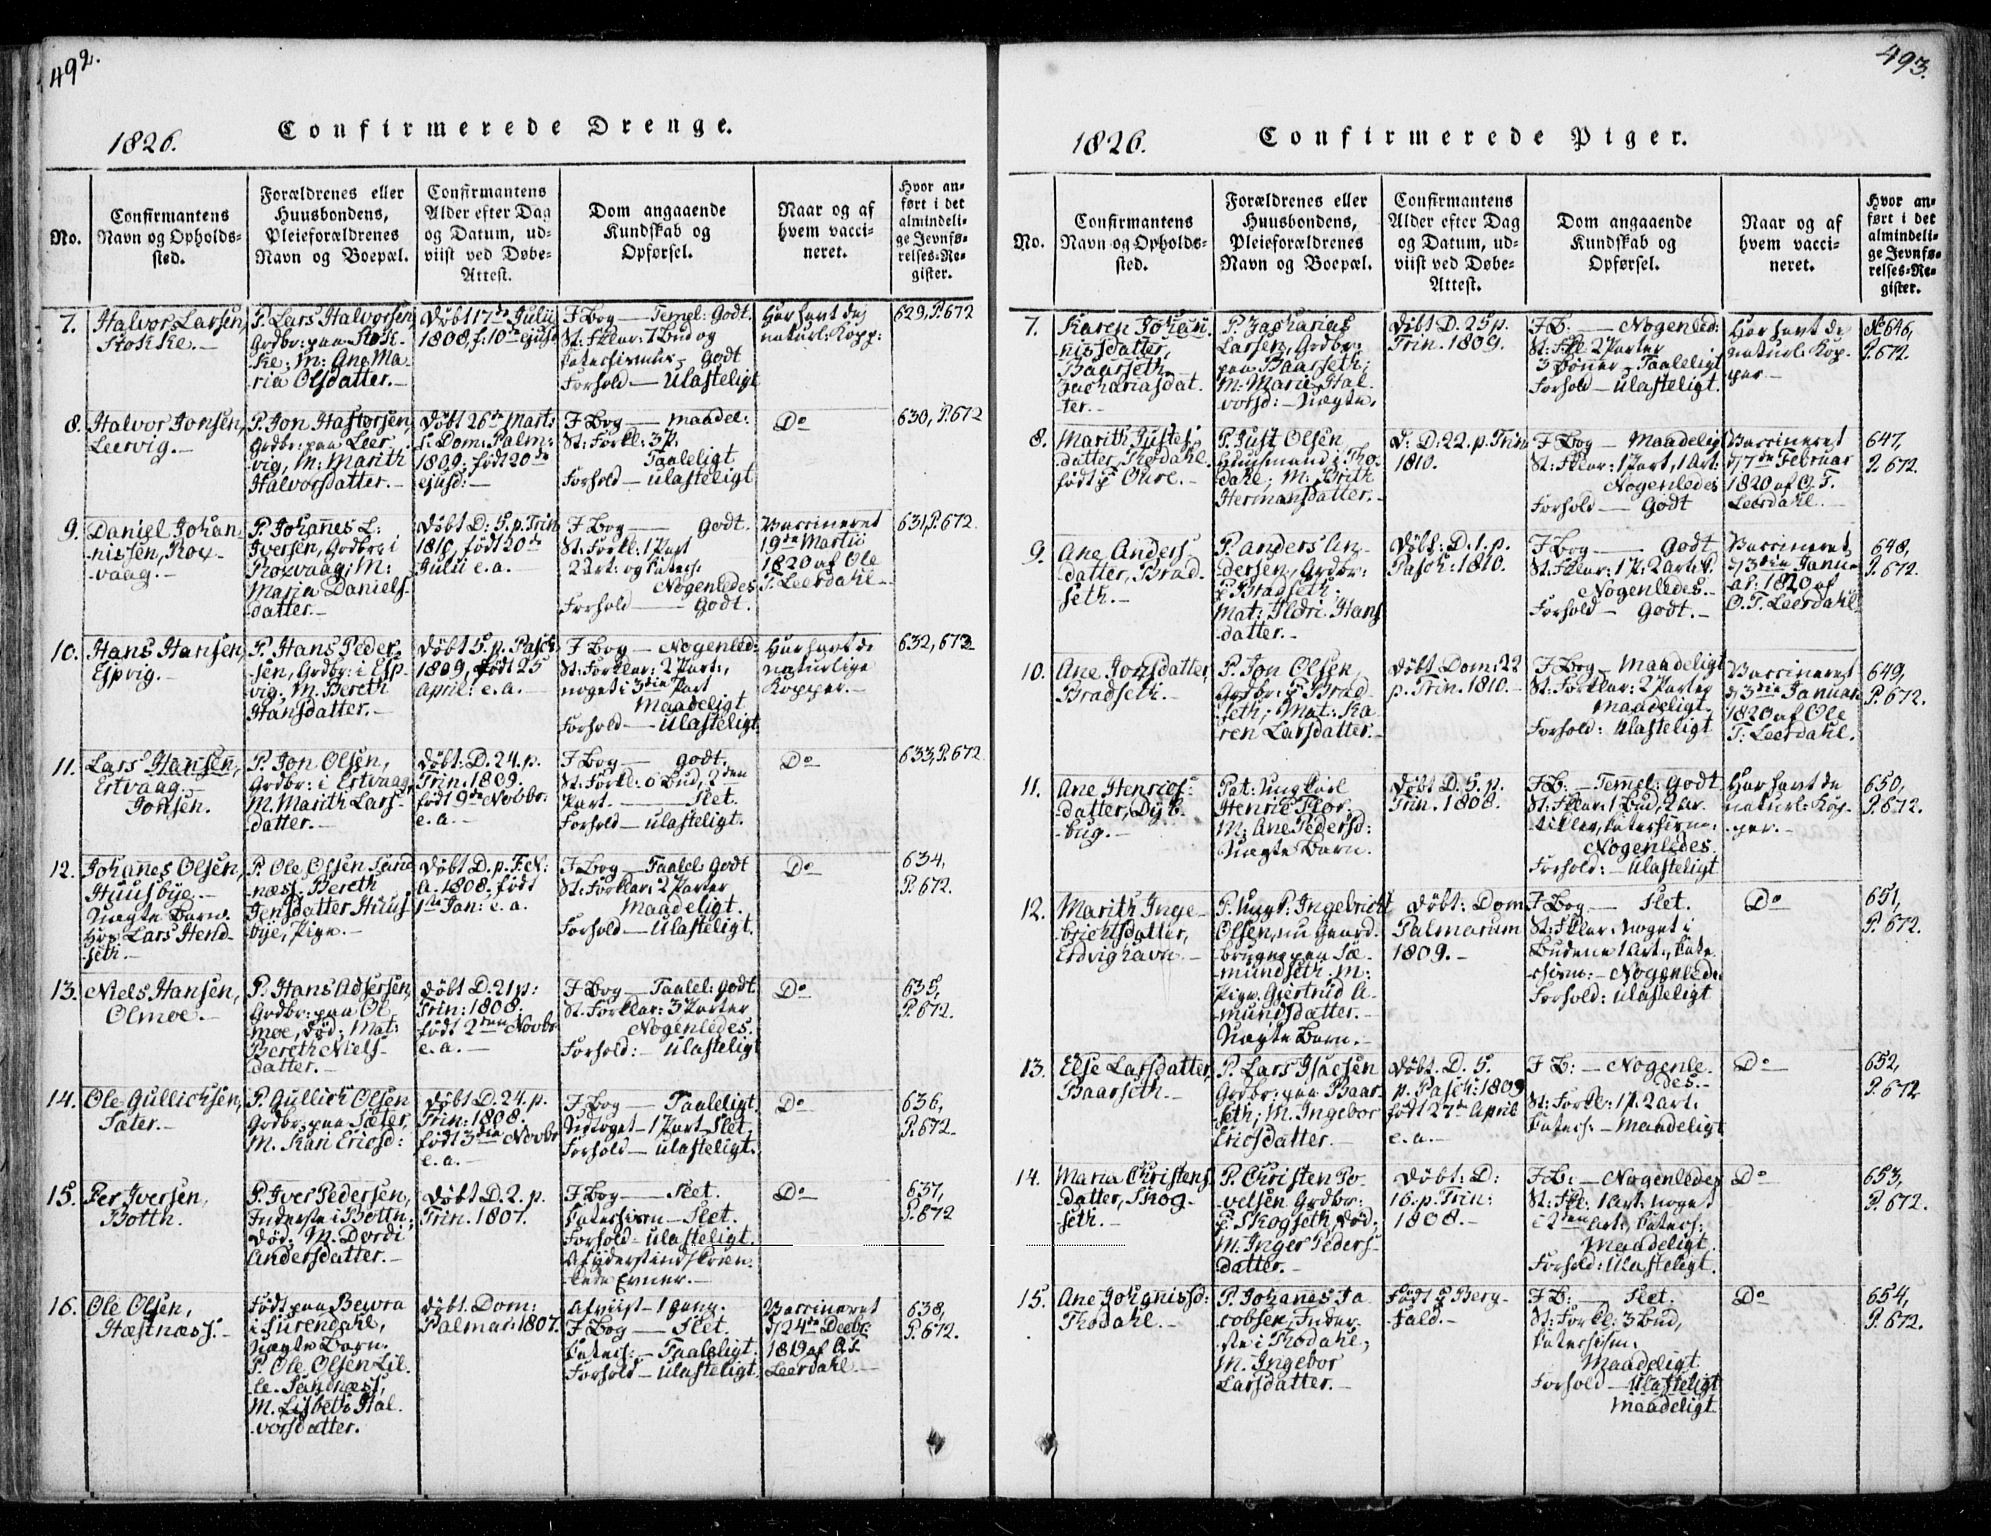 492.
1826.
Confirmerede Drenge.
No.
Confirmantens
Navn og Opholds-
sted.
Forældrenes eller
Huusbondens,
Pleieforældrenes
Navn og Boepæl.
Confirmantens
Alder efter Dag
og Datum, ud-
viist ved Døbe-
Attest.
Dom angaaende
Kundskab og
Opførsel.
Naar og af
hvem vacci-
neret.
Hvor an-
ført i det
almindeli-
ge Jevnfø-
relses-Re-
gister.
7.
Halvor Larsen,
Stokke.—
P. Lars Halvorsen,
Grdbr: paa Stok-
ke; M: Ane Ma-
ria Olsdatter.—
Døbt 17de Julii
1808, f: 10de ejusd
F Bog — Temel: Godt.
St: Fklar: 1 Bud og
Catechismus — Godt
Forhold — Ulasteligt
Har havt de
naturl: Kopp:
629, P. 672
8.
Halvor Jonsen,
Leervig.—
P. Jon Hastorsen,
Grdbr: paa Leer-
vig, M: Marith
Halvorsdatter.—
Døbt 26de Marts
s: Dom: Palm:
1809; født 20de
ejusd:—
F Bog — Maadel:
St: Forkl: 3 p.
Taaleligt
Forhold — Ulasteligt
Do
630, P. 672
9.
Daniel Johan-
nissen, Rox-
vaag.—
P. Johanes L:
Iversen, Grdbr: i
Roxvaag; M:
Maria Daniels-
datter.—
Døbt D: 5. p. Trin
1810, født 20de
Julii e. a.—
F Bog — Godt.
St: Forkl: 1 Part
2 Art: og Catech:
Nogenledes
Forhold — Godt.
Vaccineret
19de Martii
1820 af Ole
T. Leerdahl—
631, P. 672.
10.
Hans Hansen,
Espvig.—
P. Hans Peder-
sen, Grdbr: i Esp-
vig. M. Bereth
Hansdatter.—
Døbt 5. p. Pasch
1809, født 25
April: e. a.—
F Bog — Nogenled:
St: Forklar: 2 Part:,
noget i 3die Part
Maadeligt
Forhold — Ulasteligt.
Har havt de
naturlige
Kopper.—
632, 673
11.
Lars Hansen,
Ertvaag—
Jonsen.
P. Jon Olsen,
Grdbr: i Ertvaag,
M. Marith Lars-
datter.—
Døbt. D. 24. p.
Trin: 1809.
født 9de Novbr.
e. a.—
F Bog — godt.
St: Forkl: 6 Bud, 2den
Part. — Slet.
Forhold — Ulasteligt.
Do
633, P. 672
12.
Johannes Olsen,
Huusbye.—
Uægte Barn.
hos Lars Hend-
seth.—
P. Ole Olsen Sand-
næss. Bereth
Jensdatter Huus-
bye, Pige.—
Døbt D. p. F. N:
A. 1808. født
1ste Jan: e. a.
F Bog — Taalel Godt
St: Forklar: 2 Parter
Maadeligt.
Forhold — Ulasteligt.
Do
634,
P. 672.
13.
Niels Hansen,
Olmoe.—
P. Hans Adsersen,
Grdbr: paa Ol-
moe, død; Mat:
Bereth Niels-
datter.—
Døbt D. 21 p:
Trin: 1808.
født 2den Novbr
e. a.—
F Bog — Taalel: Godt
St: Forklar: 3 Parter
Nogenledes.
Forhold: — Ulasteligt
Do
635,
P. 672.
14.
Ole Gullichsen,
Sater.—
P. Gullich Olsen
Grdbr: paa Sæter,
M. Kari Ericsd:
Døbt D. 24. p.
Trin: 1808.
født 3die Novbr
e. a.—
F Bog — Taaleligt.
Udtoget — 1 Part Slet
Forhold — Ulasteligt.
Do
636,
P. 672.
15.
Per Iversen,
Bottn.
P. Iver Pedersen,
Inderste i Bottn,
død; M. Dordi
Andersdatter.—
Døbt D. 2. p.
Trin. 1807.
F Bog — Slet.
Catechism — Slet.
Forhold — Ulasteligt.
Af yderst indskræn-
kede Evner.—
Do
637,
P. 672
16.
Ole Olsen,
Hæstnæss.—
Født paa Bewra
i Surendahl,
Uægte Barn.
P. Ole Olsen Lil-
le Sandnæss,
M. Lisbeth Hal-
vorsdatter.
Døbt. Dom:
Palmar: 1807.
Afviist — 1 gang.
F Bog — Slet
Catech: — Taaleligt.
Forhold — Ulasteligt.
Vaccineret
d 24de Decbr
1819 af O. T.
Leerdahl.—
638,
P. 672.
493.
1826.
Confirmerede Piger.
No.
Confirmantens
Navn og Opholds-
sted.
Forældrenes eller
Huusbondens,
Pleieforældrenes
Navn og Boepæl.
Confirmantens
Alder efter Dag
og Datum, ud-
viist ved Døbe-
Attest.
Dom angaaende
Kundskab og
Opførsel.
Naar og af
hvem vacci-
neret.
Hvor an-
ført i det
almindeli-
ge Jevnfø-
relses-Re-
gister.
7.
Karen Johan-
nisdatter,
Baarseth—
Zachariasdat-
ter.—
P. Zacharias
Larsen, Grdbr:
paa Baarseth;
M. Marii Hal-
vorsd:— Uægte.
Døbt D. 25 p.
Trin. 1809.
F B. — Nogenled:
St: Fkl 2 Parter
3 Bøner — Taaleligt
Forhold — Ulasteligt.
Har havt de
naturl: Kop-
per—
No 646,
P. 672.
8.
Marith Justes-
datter, Thodahl.
født p: Oure.—
P. Just Olsen,
Huusmand i Tho-
dahl; M. Brith
Hermansdatter.—
D: D. 22. p. Trin
1810.
F Bog — Maadeligt
St: Fklar: 1 Part, 1 Art:
Nogenledes
Forhold — Godt
Vaccineret
d 7de Februar
1820 af O. T.
Leerdahl.—
647,
P. 672.
9.
Ane Anders-
datter, Brad-
seth.—
P. Anders An-
dersen, Grdbr:
p: Bradseth:
Mat: Ildri Hans-
datter.—
Døbt: D. 1. p.
Pasch: 1810.
F Bog — Godt
St. Fklar: 1 P: 2 Art: C.
Nogenledes.—
Forhold — Godt.—
Vaccineret,
d 3die Janu-
ar: 1820 af
O. T. Leerdahl
648,
P. 672.
10.
Ane Jonsdatter,
Bradseth.—
P. Jon Olsen,
Grdbr: p Brad-
seth; Mat: Ka-
ren Larsdatter.—
Døbt Dom: 22
p. Trin. 1810.—
F Bog — Maadeligt
St: Forklar: 2 Parter
Maadeligt.
Forhold: Ulasteligt
Vaccineret
d 3die Januar
1820 af Ole
T. Leerdahl.
649,
P. 672.
11.
Ane Henrics-
datter, Dyb-
bug.—
Pat: Ungkarl
Henric Flor.
M: Ane Pedersd:
Uægte Barn.
Døbt D. 5. p.
Trin. 1808.
F B: — Temmel: Godt
St: Fklar: 1 Bud, 2 Ar-
tikler, Catechism:
Nogenledes.
Forhold: — Ulasteligt.
Har havt de
naturl: Kop-
per.—
650,
P. 672.
12.
Marith Inge-
brichtsdatter,
Edvighavn.—
P. Ungk: Ingebricht
Olsen, nu gaard-
bruger paa Sæ-
mundseth. M:
Pige Gjertrud A-
mundsdatter.—
Uægte Barn.—
Døbt: Dom
Palmarum
1809.—
F Bog — Slet.
St: Fklar: Noget i
Budene 1 Art:, Cate-
chism:— Nogenledes
Forhold: Ulasteligt
Do
651,
P. 672.
13.
Else Larsdatter,
Baarseth.—
P. Lars Isacsen
Grdbr: paa Baar-
seth; M. Ingebor
Ericsdatter.—
Døbt. D. 5.
p. Pasch: 1809
født 27de April
e. a.—
F B: — Nogenle-
des.—
St: Forkl: 1 P. 2 Art:
Catech: — Maadeligt
Do
652,
P. 672
14.
Maria Christens-
datter, Skog-
seth.—
P. Christen Po-
velsen Grdbr:
p: Skogseth, død;
M. Inger Peders-
datter.—
Døbt: D:
16. p. Trin:
1808.—
F B: — Nogenledes
St: Fkl: 1 Art: noget
i 2den Art: Catech:
Maadeligt.
Forhold: Ulasteligt.
Do
653,
P. 672.
15.
Ane Johanisd:
Thodahl.—
P. Johanes Ja-
cobsen, Inder-
ste i Thodahl;
M. Ingebor
Larsdatter.—
Født p Berg-
fald.—
F B: — Slet.
St: Forkl: 3 Bud,
Catechism:
Maadeligt
Forhold — Ulasteligt
Maadeligt.
Do
654,
P. 672.